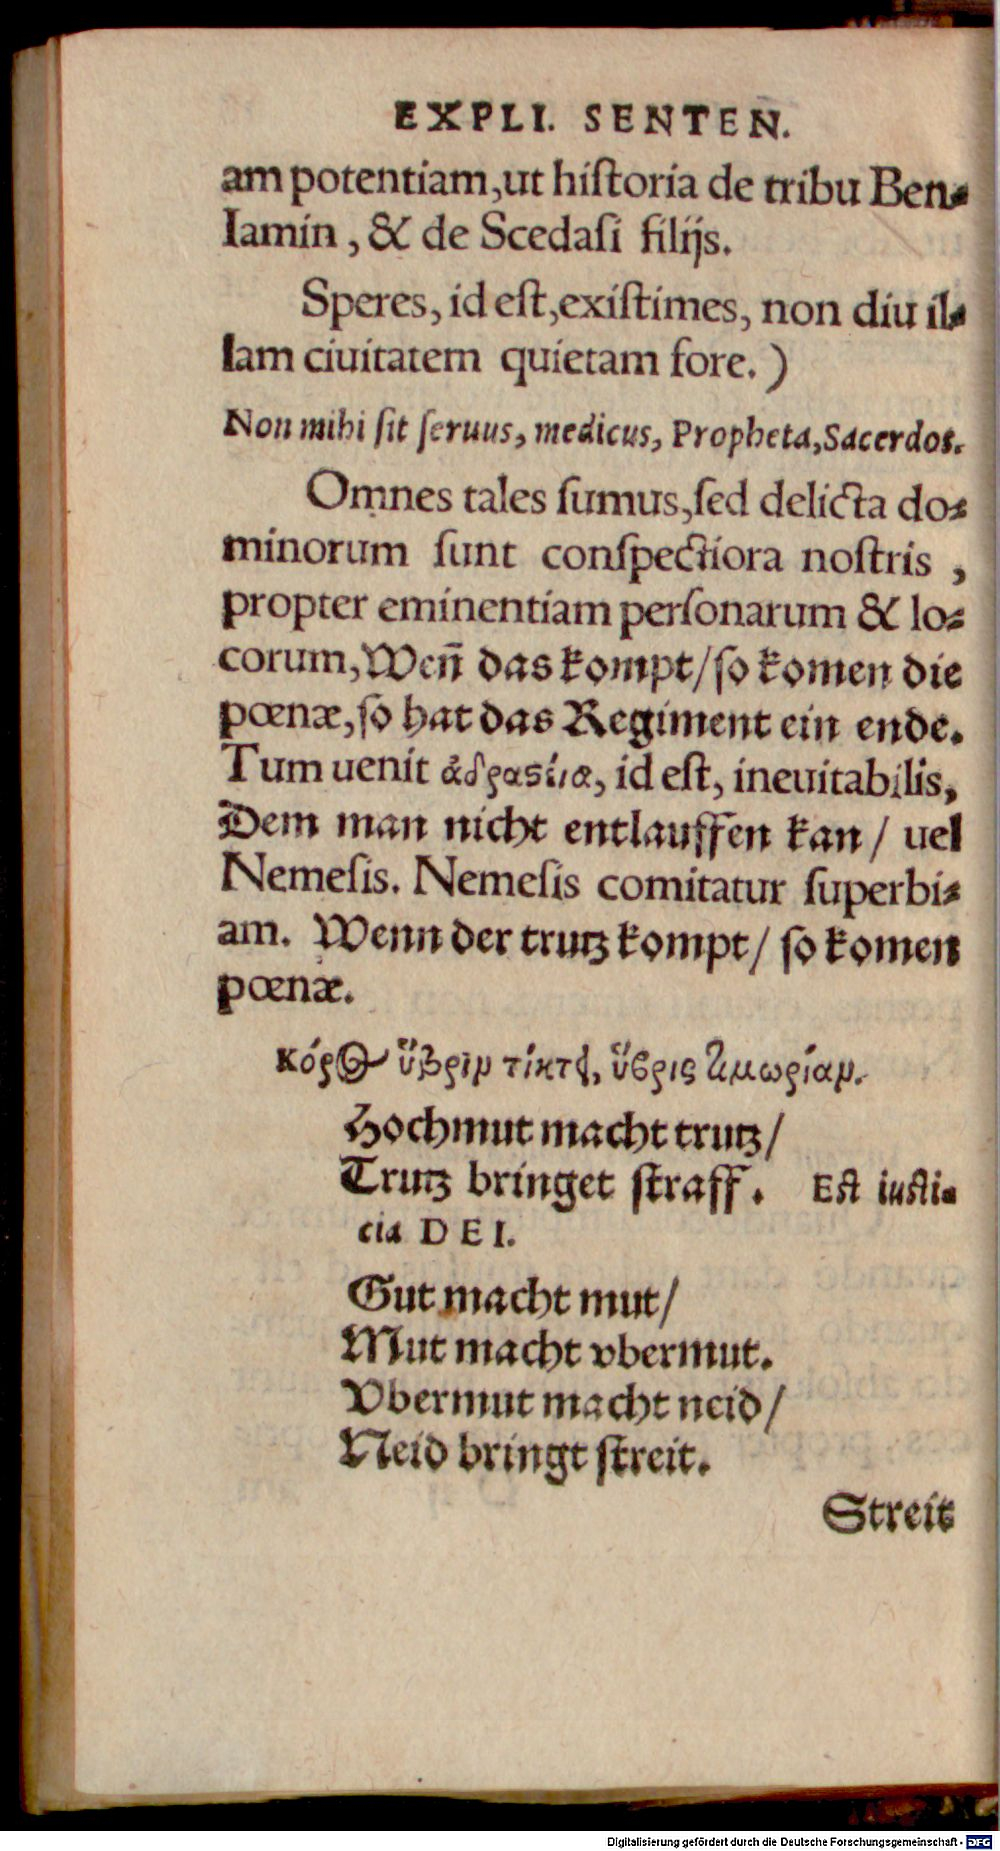 EXPLI. SENTEN.
am potentiam, ut hiſtoria de tribu Ben⸗
Iamin, & de Scedaſi filijs.
Speres, id eſt, exiſtimes, non diu il⸗
lam ciuitatem quietam fore.)
Non mihi ſit ſeruus, medicus, Propheta, Sacerdos.
Omnes tales ſumus, ſed delicta do⸗
minorum ſunt conſpectiora noſtris,
propter eminentiam perſonarum & lo⸗
corum, Weñ das kompt/ſo komen die
pœnæ, ſo hat das Regiment ein ende.
Tum uenit ἀδραστία, id eſt, ineuitabilis,
Dem man nicht entlauffen kan/ uel
Nemeſis. Nemeſis comitatur ſuperbi⸗
am. Wenn der trutz kompt/ ſo komen
pœnæ.
Κόρος ὕβριν τίκτει, ὕβρις τιμωρίαν.
Hochmut macht trutz/
Trutz bringet ſtraff. Eſt iuſti⸗
cia DEI.
Gut macht mut/
Mut macht vbermut.
Vbermut macht neid/
Neid bringt ſtreit.
Streit
Digitalisierung gefördert durch die Deutsche Forschungsgemeinschaft - DFG